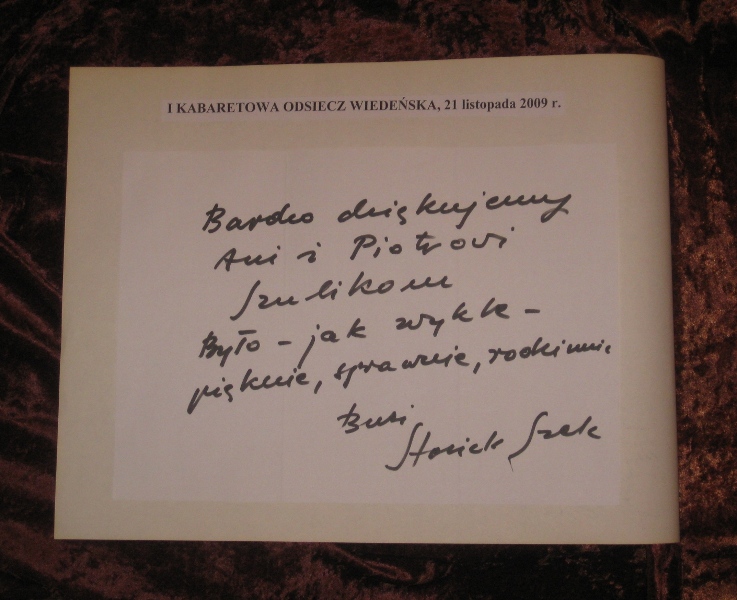 I KABARETOWA ODSIECZ WIEDEŃSKA, 21 listopada 2009 r.
Bardzo dziękujemy
Ani i Piotrowi
Szulikom
Było – jak zwykle –
pięknie, sprawnie, rodzinnie
Buzi